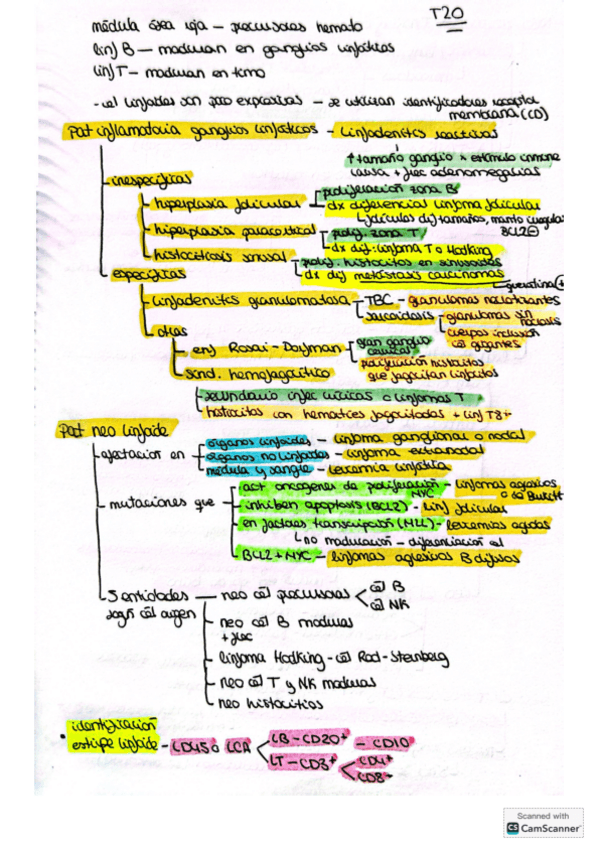 T20
médula ósea roja – precursores hemato
linf B – maduran en ganglios linfáticos
linf T – maduran en timo
- cel linfoides son poco expresivas – se utilizan identificadores receptor
membrana (CD)
Pat inflamatoria ganglios linfáticos – Linfadenitis reactivas
↑ tamaño ganglio x estímulo inmune
causa + frec adenomegalias
inespecíficas
hiperplasia folicular – proliferación zona B
dx diferencial linfoma folicular
folículos dif tamaños, manto irregular
BCL2 ⊖
hiperplasia paracortical – prolif. zona T
dx dif: linfoma T o Hodking
histocitosis sinusal – prolif. histiocitos en sinusoides
dx dif metástasis carcinomas
queratina ⊕
específicas
linfadenitis granulomatosa – TBC – granulomas necrotizantes
sarcoidosis – granulomas sin necrosis
cuerpos inclusión
cél gigantes
otras
enf Rosai-Dorfman – gran ganglio
cervical
proliferación histiocitos
que fagocitan linfocitos
sind. hemofagocítico
secundario infec víricas o linfomas T
histiocitos con hematíes fagocitados + linf T8+
Pat neo linfoide
afectación en – órganos linfoides – linfoma ganglionar o nodal
órganos no linfoides – linfoma extranodal
médula y sangre – leucemia linfática
mutaciones que – act oncogenes de proliferación – linfomas agresivos
MYC o de Burkitt
inhiben apoptosis (BCL2) – linf folicular
en factores transcripción (MLL) – leucemias agudas
no maduración – diferenciación cel
BCL2 + MYC – linfomas agresivos B difusos
5 entidades — neo cél precursoras < cél B
según cél origen cél NK
neo cél B maduras
+ frec
linfoma Hodking – cél Red-Sternberg
neo cél T y NK maduras
neo histiocitos
identificación
estirpe linfoide – CD45 o LCA < LB – CD20+ – CD10
LT – CD3+ < CD4+
CD8+
Scanned with
CS CamScanner